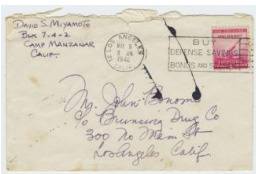 DAVID S. MIYAMOTO
BLK 7-4-2
CAMP MANZANAR
CALIF.
LOS ANGELES
1942
CALIF.
BUY
DEFENSE SAVINGS
BONDS AND
Mr. John Bonomo
c/o Brunswig Drug Co
300 No Main St
Los Angeles, Calif